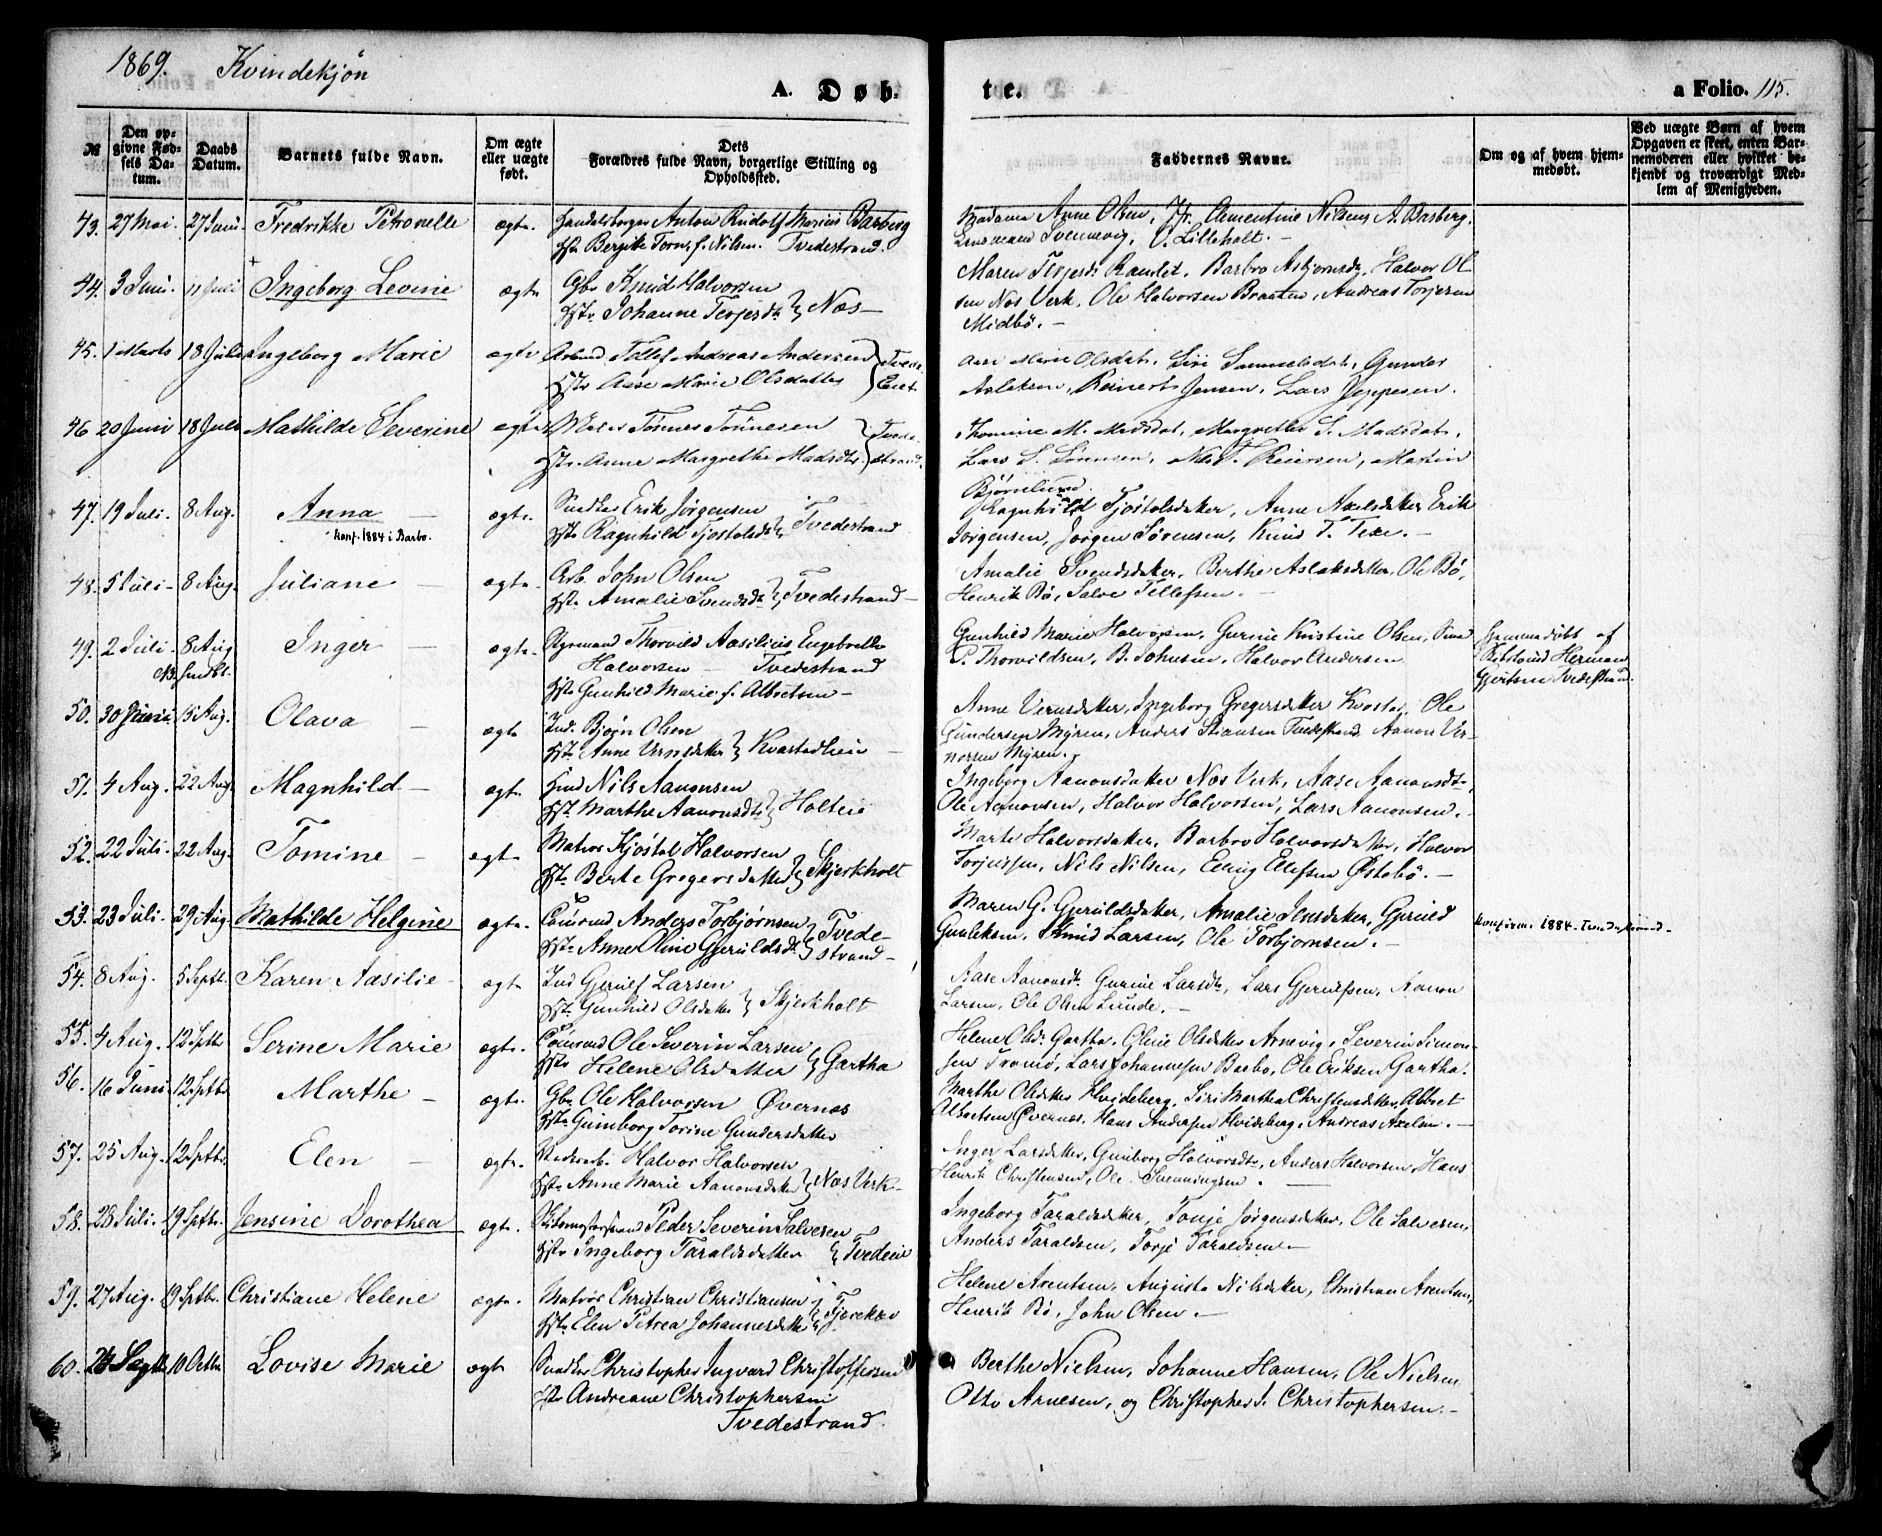 1869. Kvindekjøn
A. Døb-
te.
a Folio. 115.
№
Den op-
givne Fød-
sels Da-
tum.
Daabs
Datum.
Barnets fulde Navn.
Om ægte
eller uægte
født.
Dets
Forældres fulde Navn, borgerlige Stilling og
Opholdssted.
Faddernes Navne.
Om og af hvem hjem-
medøbt.
Ved uægte Børn af hvem
Opgaven er skeet, enten Bar-
nemoderen eller hvilket be-
kjendt og troværdigt Med-
lem af Menigheden.
43. 27 Mai 27 Juni Fredrikke Petronelle ægte. Anton Rudolf Marius Basberg
Tvedestrand.
Madame Anne Olsen, Jfr. Clementine Nilsen, A. Basberg,
Svennevig, O. Lilleholt. —
44. 3 Juni 11 Juli Ingeborg Levine ægte Gbr Knud Halvorsen
Hstr Johanne Terjesdt } Næs —
Maren Terjesdt Randet. Barbro Asbjornsdt, Halvor Ol-
sen Næs Verk, Ole Halvorsen Braaten, Andreas Torjesen
Midbö. —
45. 1 Marts 18 Juli Ingeborg Marie ægte Tellef Andreas Andersen
Hstr Aase Marie Olsdatter
Aase Marie Olsdat. Siri Samuelsdat, Gunder
Aslaksen, Reinert Jensen, Lars Jeppesen.
46 20 Juni 18 Juli Mathilde Severine ægte Tönnes Tönnesen
Hstr. Anne Margrethe Madsdtr. } Tvede-
strand.
Thomine M. Madsdat, Margrethe S. Madsdat.
Lars S. Sörensen, Nils T. Reiersen, Martin
Björnelund.
47. 19 Juli. 8 Aug. Anna — ægte. Snedker Erik Jörgensen
konf. 1884 i Barbo.
Hstr Ragnhild Tjostolsdt } Tvedestrand
Ragnhild Tjöstolsdatter, Anne Axelsdatter Erik
Jörgensen, Jörgen Sörensen, Knud T. Texe. —
48. 5 Juli — 8 Aug. Juliane — ægte Arb. John Olsen
Hstr Amalie Svendsdt } Tvedestrand —
Amalie Svendsdatter, Berthe Aslaksdatter, Ole Bö,
Henrik Bö, Salve Tellefsen. —
49. 2 Juli — 8 Aug Inger — ægte. Styrmand Thorvild Aasilius Engebrethe
Halvorsen — Tvedestrand
Hstr Gunhild Marie f. Albretsen —
Gunhild Marie Halvorsen, Gurine Kristine Olsen,
P. Thorvildsen, B. Johnsen, Halvor Andersen
Hjemmedöbt af
Herman
Gjertsen Tvedestrand.
50. 30 Juni 15 Aug. Olava — ægte Ind. Bjørn Olsen
Hstr Anne Vernsdatter } Kvastadheie —
Anne Vernsdatter, Ingeborg Gregersdatter Kvastad, Ole
Gundersen Myren, Anders Stiansen Tvedestrand Aanon Ver-
norsen Myren.
51. 4 Aug. 22 Aug. Magnhild — ægte. Nils Aanonsen
Hstr Marthe Aanonsdt } Holteie
Ingeborg Aanonsdatter Næs Verk, Aase Aanonsdt,
Ole Aanonsen, Halvor Halvorsen, Lars Aanonsen. —
52. 22 Juli. 22 Aug. Tomine — ægte Matros Kjöstol Halvorsen
Hstr. Berte Gregersdatter } Skjerkholt
Marte Halvorsdatter, Barbro Halvorsdatter, Halvor
Torjussen, Nils Nilsen, Elling Ellefsen Östebö. —
53. 23 Juli. 29 Aug. Mathilde Helgine ægte. Tömmmd Anders Torbjørnsen } Tvede-
Hstr. Anne Oline Gjeruldsdt } strand —
Maren G. Gjeruldsdatter, Amalie Jensdatter, Gjeruld
Gunleksen, Knud Larsen, Ole Torbjornsen. —
konfirm. 1884. Tvedestrand —
54. 8 Aug. 5 Septb. Karen Aasilie — ægte Ind Gjerulf Larsen
Hstr. Gunhild Olsdatter } Skjerkholt
Aase Aanonsdt. Gurine Larsdt, Lars Gjerulfsen, Aanon
Larsen, Ole Olsen Lunde. —
55. 4 Aug. 12 Sptb Serine Marie ægte. Ole Severin Larsen
Hstr Helene Olsdatter } Gartha
Helene Olsdt. Gartha. Oline Olsdatter Arnevig, Severin Simon-
sen Tromö, Lars Johannesen Barbo, Ole Eriksen Gartha.
56. 16 Juni 12 Sptb. Marthe — ægte. Gbr Ole Halvorsen Övernæs
Hstr. Gunborg Torine Gundersdatter
Marthe Olsdatter Hvideberg, Siri Martha Christensdatter, Albret
Albretsen Övernæs, Hans Andersen Hvideberg, Andreas Axelsen. —
57. 25 Aug. 12 Sptb. Elen — ægte. Halvor Halvorsen
Hstr. Anne Marie Aanonsdatter } Næs Verk —
Inger Larsdatter, Gunborg Halvorsdtr, Anders Halvorsen, Hans
Henrik Christensen, Ole Svenningsen. —
58. 28 Juli. 19 Sptb. Jensine Dorothea ægte. Peder Severin Salvesen
Hstr Ingeborg Taraldsdatter } Tvedeeie
Ingeborg Taraldsdatter, Tonje Jörgensdatter, Ole Salvesen,
Anders Taraldsen, Torje Taraldsen —
59. 27 Aug. 19 Sptb. Christiane Helene ægte. Matros Christian Christiansen
Hstr Elen Petrea Johannesdatter
Helene Arentsen, Augusta Nilsdatter, Christian Arentsen,
Henrik Bö, John Olsen. —
60. 24 Septb 10 Octbr Lovise Marie ægte Snedker Christopher Ingvard Christoffersen
Hstr Andreane Christophersen
Tvedestrand.
Berthe Nielsen, Johanne Hansen, Ole Nielsen
Otto Arnesen, og Christopher I. Christophersen. —